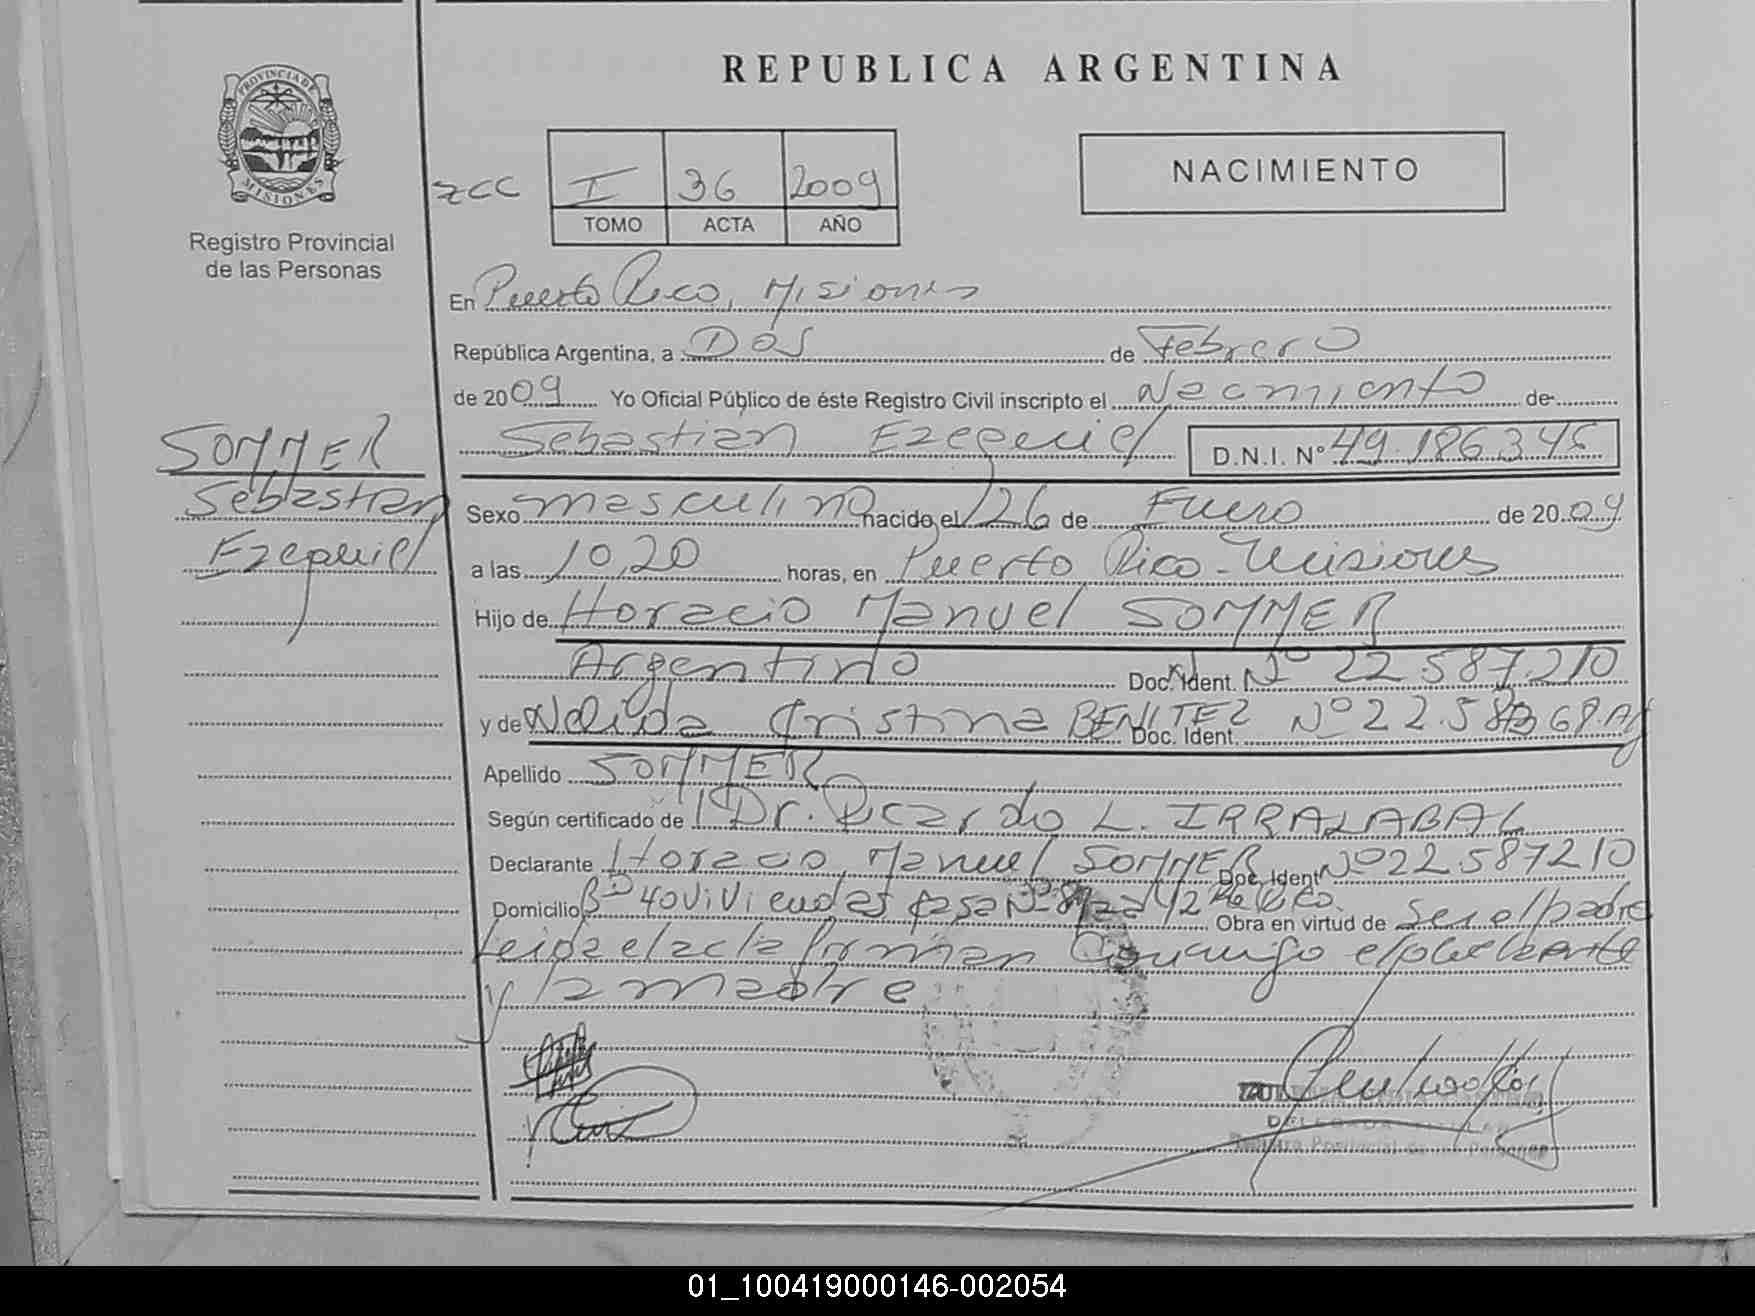 REPUBLICA ARGENTINA
PROVINCIA DE
MISIONES
Registro Provincial
de las Personas
zcc
I 36 2009
TOMO ACTA AÑO
NACIMIENTO
En Puerto Rico, Misiones
República Argentina, a Dos de Febrero
de 2009 Yo Oficial Público de éste Registro Civil inscripto el Nacimiento de
Sebastian Ezequiel D.N.I. Nº 49.186.345
SOMMER
Sebastian
Ezequiel
Sexo masculino nacido el 26 de Enero de 2009
a las 10,20 horas, en Puerto Rico - Misiones
Hijo de Horacio Manuel SOMMER
Argentino Doc. Ident. Nº 22.587.210
y de Nelida Cristina BENITEZ Doc. Ident. Nº 22.58
Apellido SOMMER
Según certificado de Dr. Ricardo L. IRRALABAL
Declarante Horacio Manuel SOMMER Doc. Ident Nº 22587210
Domicilio Bº 40 Viviendas casa Nº Obra en virtud de ser el padre
Leida el acta firman Conmigo el declarante
y la madre
DELEGADA
Registro Provincial de las Personas
01_100419000146-002054